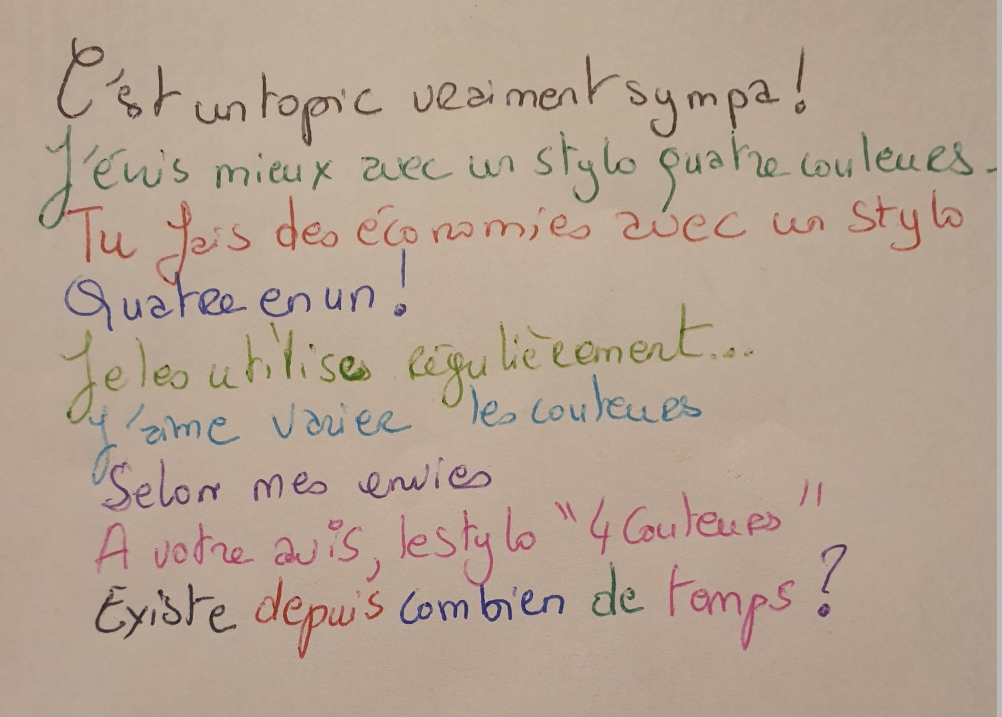 C'est un topic vraiment sympa !
J'écris mieux avec un stylo quatre couleurs.
Tu fais des économies avec un stylo
Quatre en un !
Je les utilises régulièrement...
J'aime varier les couleurs
Selon mes envies
A votre avis, le stylo "4 Couleurs"
Existe depuis combien de temps ?